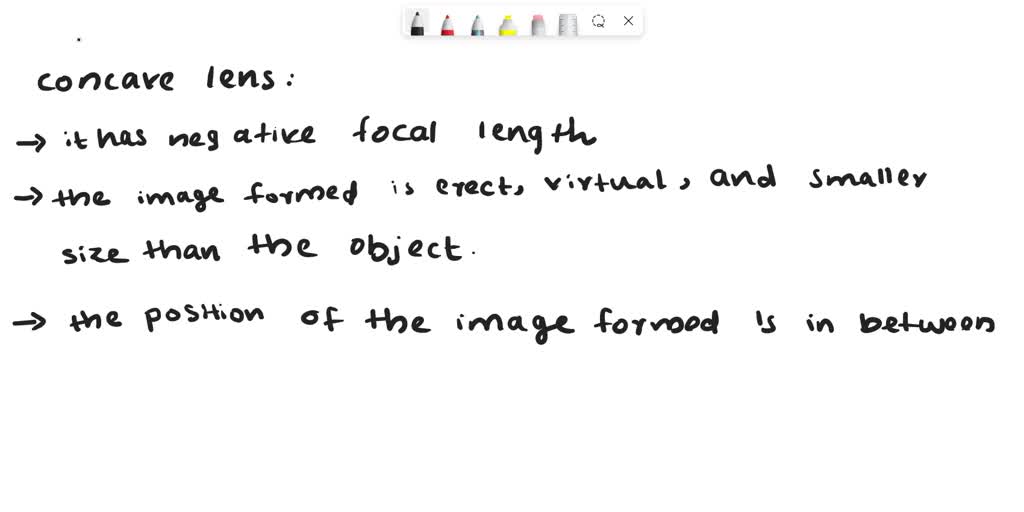 concave lens:
→ it has negative focal length
→ the image formed is erect, virtual, and smaller
size than the object.
→ the position of the image formed is in between